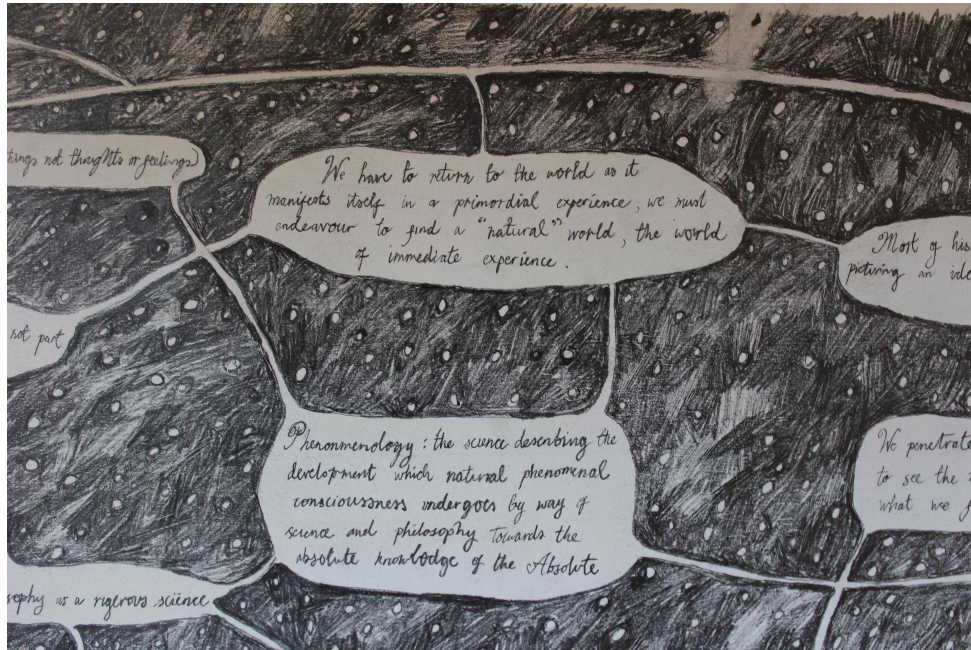 things not thoughts or feelings
We have to return to the world as it
manifests itself in a primordial experience, we must
endeavour to find a "natural" world, the world
of immediate experience.
Most of his
picturing an
not part
Phenonmenology : the science describing the
development which natural phenomenal
conscioussness undergoes by way of
science and philosophy towards the
absolute knowlodge of the Absolute
We penetrate
to see the
what we
sophy as a rigerous science